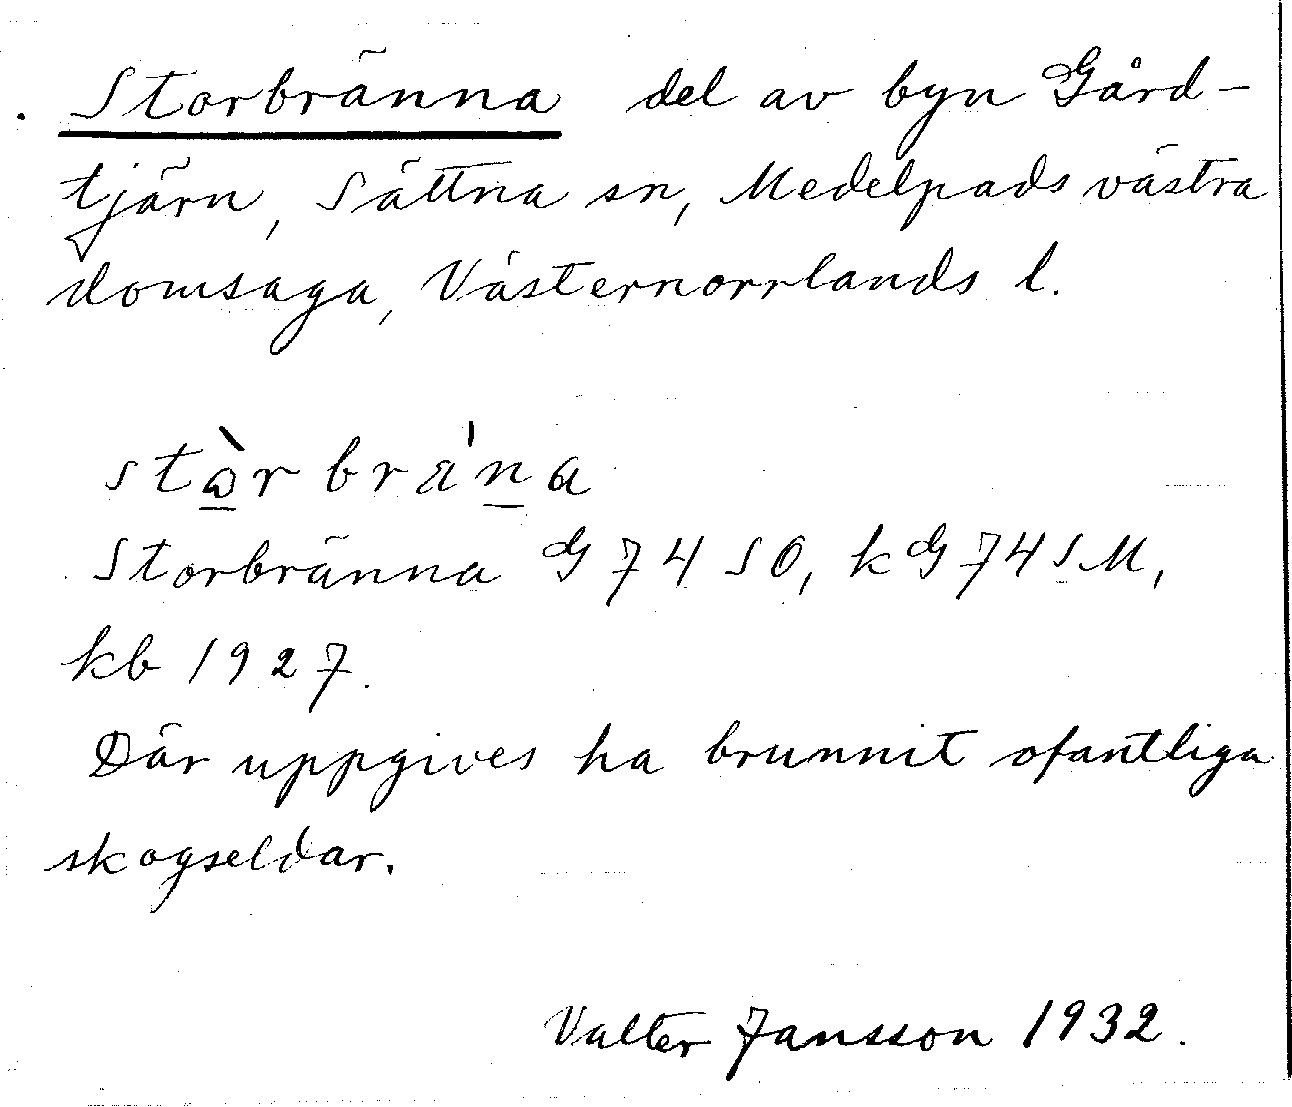 Storbränna del av byn Gård-
tjärn, Sättna sn, Medelpads västra
domsaga, Västernorrlands l.
stòrbrä'na
Storbränna G 74 SO, kG 74 SM,
kb 1927.
Där uppgives ha brunnit ofantliga
skogseldar.
Valter Jansson 1932.